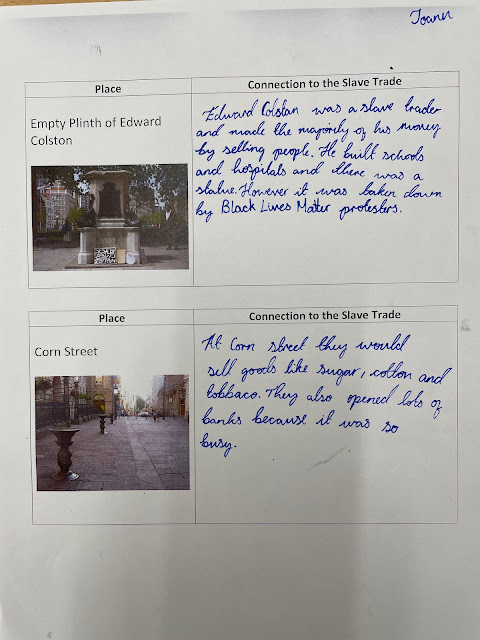 Joann
Place
Connection to the Slave Trade
Empty Plinth of Edward
Colston
Edward Colstan was a slave trader
and made the majority of his money
by selling people. He built schools
and hospitals and there was a
statue. However it was taken down
by Black Lives Matter protesters.
Place
Connection to the Slave Trade
Corn Street
At Corn street they would
sell goods like sugar, cotton and
tobbaco. They also opened lots of
banks because it was so
busy.